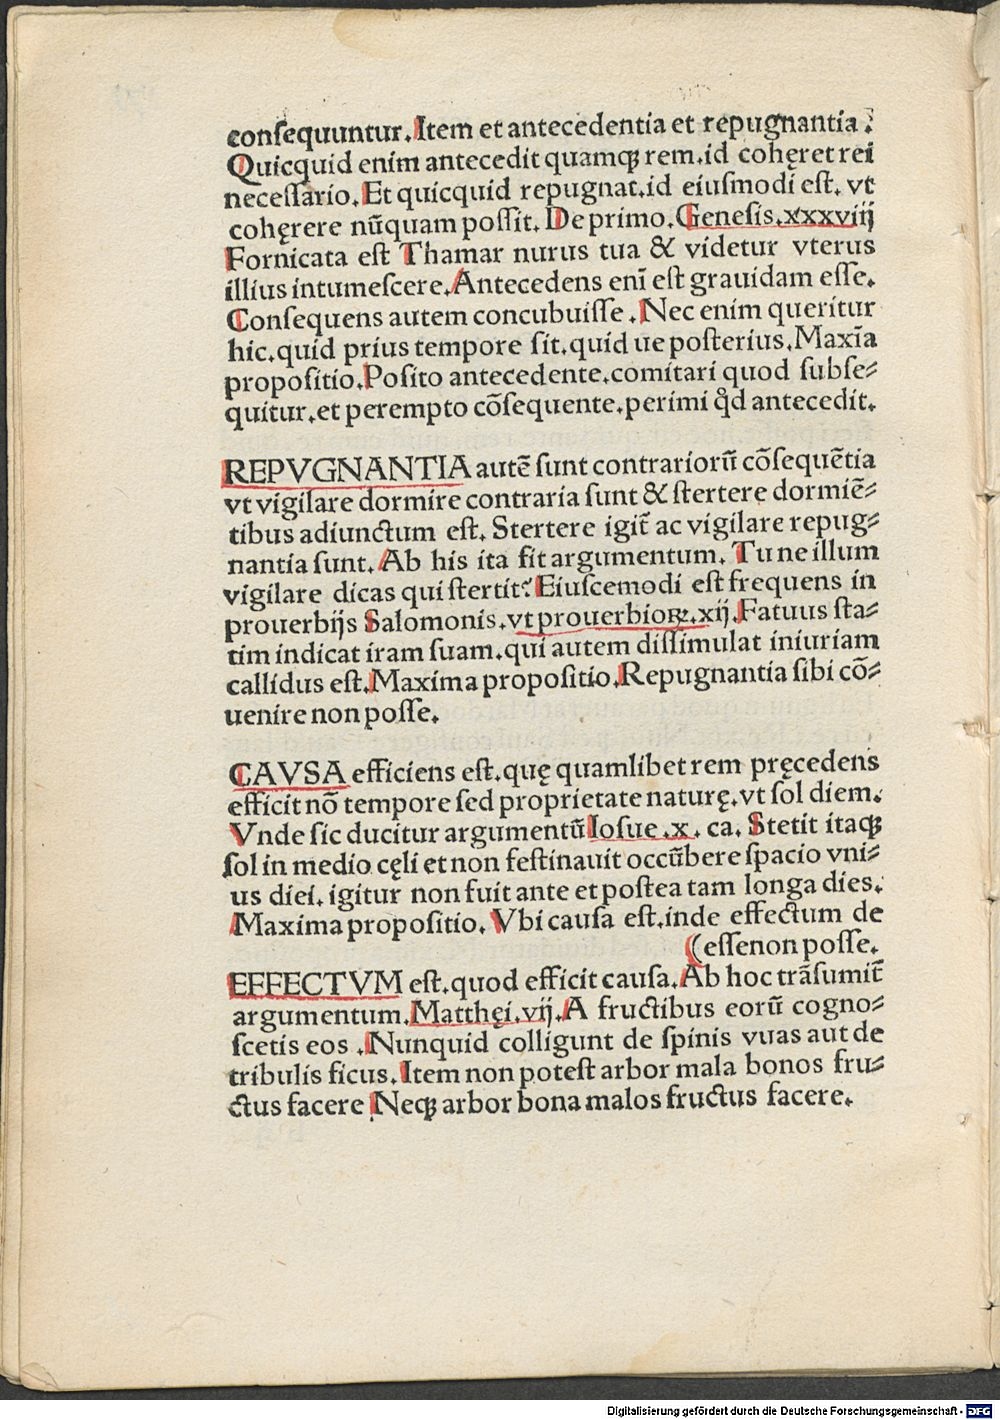 conſequuntur. Item et antecedentia et repugnantia:
Quicquid enim antecedit quamqꝫ rem. id cohęret rei
neceſſario. Et quicquid repugnat. id eiuſmodi eſt. vt
cohęrere nūquam poſſit. De primo. Geneſis. xxxviij
Fornicata eſt Thamar nurus tua & videtur vterus
illius intumeſcere. Antecedens enī eſt grauidam eſſe.
Conſequens autem concubuiſſe. Nec enim queritur
hic. quid prius tempore ſit. quid ue poſterius. Maxīa
propoſitio. Poſito antecedente. comitari quod subſe-
quitur. et perempto cōſequente. perimi qd̊ antecedit.
REPVGNANTIA autē ſunt contrariorū cōſequētia
vt vigilare dormire contraria ſunt & ſtertere dormiē-
tibus adiunctum eſt. Stertere igit̃ ac vigilare repug-
nantia ſunt. Ab his ita fit argumentum. Tu ne illum
vigilare dicas qui ſtertit? Eiuſcemodi eſt frequens in
prouerbijs Salomonis. vt prouerbioꝝ. xij. Fatuus ſta-
tim indicat iram ſuam. qui autem diſſimulat iniuriam
callidus eſt. Maxima propoſitio. Repugnantia ſibi cō-
uenire non poſſe.
CAVSA efficiens eſt. quę quamlibet rem pręcedens
efficit nō tempore ſed proprietate naturę. vt ſol diem.
Vnde ſic ducitur argumentū Ioſue. x. ca. Stetit itaqꝫ
ſol in medio cęli et non feſtinauit occūbere ſpacio vni-
us diei. igitur non fuit ante et poſtea tam longa dies.
Maxima propoſitio. Vbi cauſa eſt. inde effectum de
(eſſe non poſſe.
EFFECTVM eſt. quod efficit cauſa. Ab hoc trāſumit̃
argumentum. Matthęi. vij. A fructibus eorū cogno-
ſcetis eos. Nunquid colligunt de ſpinis vuas aut de
tribulis ficus. Item non poteſt arbor mala bonos fru-
ctus facere Neqꝫ arbor bona malos fructus facere.
Digitalisierung gefördert durch die Deutsche Forschungsgemeinschaft - DFG